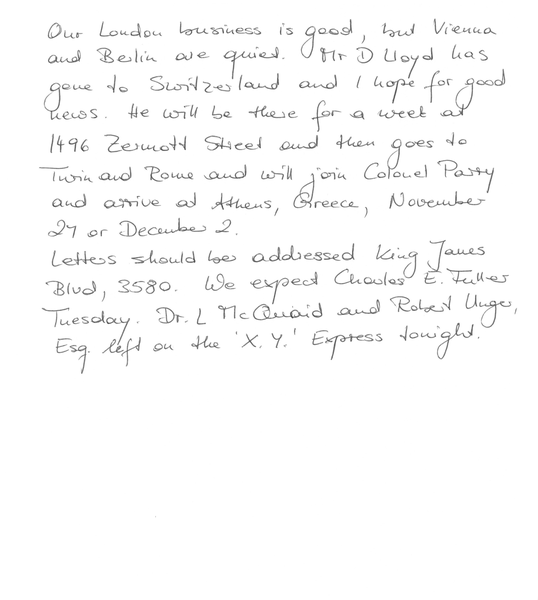 Our London business is good, but Vienna
and Berlin are quiet. Mr D Lloyd has
gone to Switzerland and I hope for good
news. He will be there for a week at
1496 Zermott Street and then goes to
Turin and Rome and will join Colonel Parry
and arrive at Athens, Greece, November
27 or December 2.
Letters should be addressed King James
Blvd, 3580. We expect Charles E. Fuller
Tuesday. Dr. L McQuaid and Robert Unger,
Esq. left on the 'X.Y.' Express tonight.